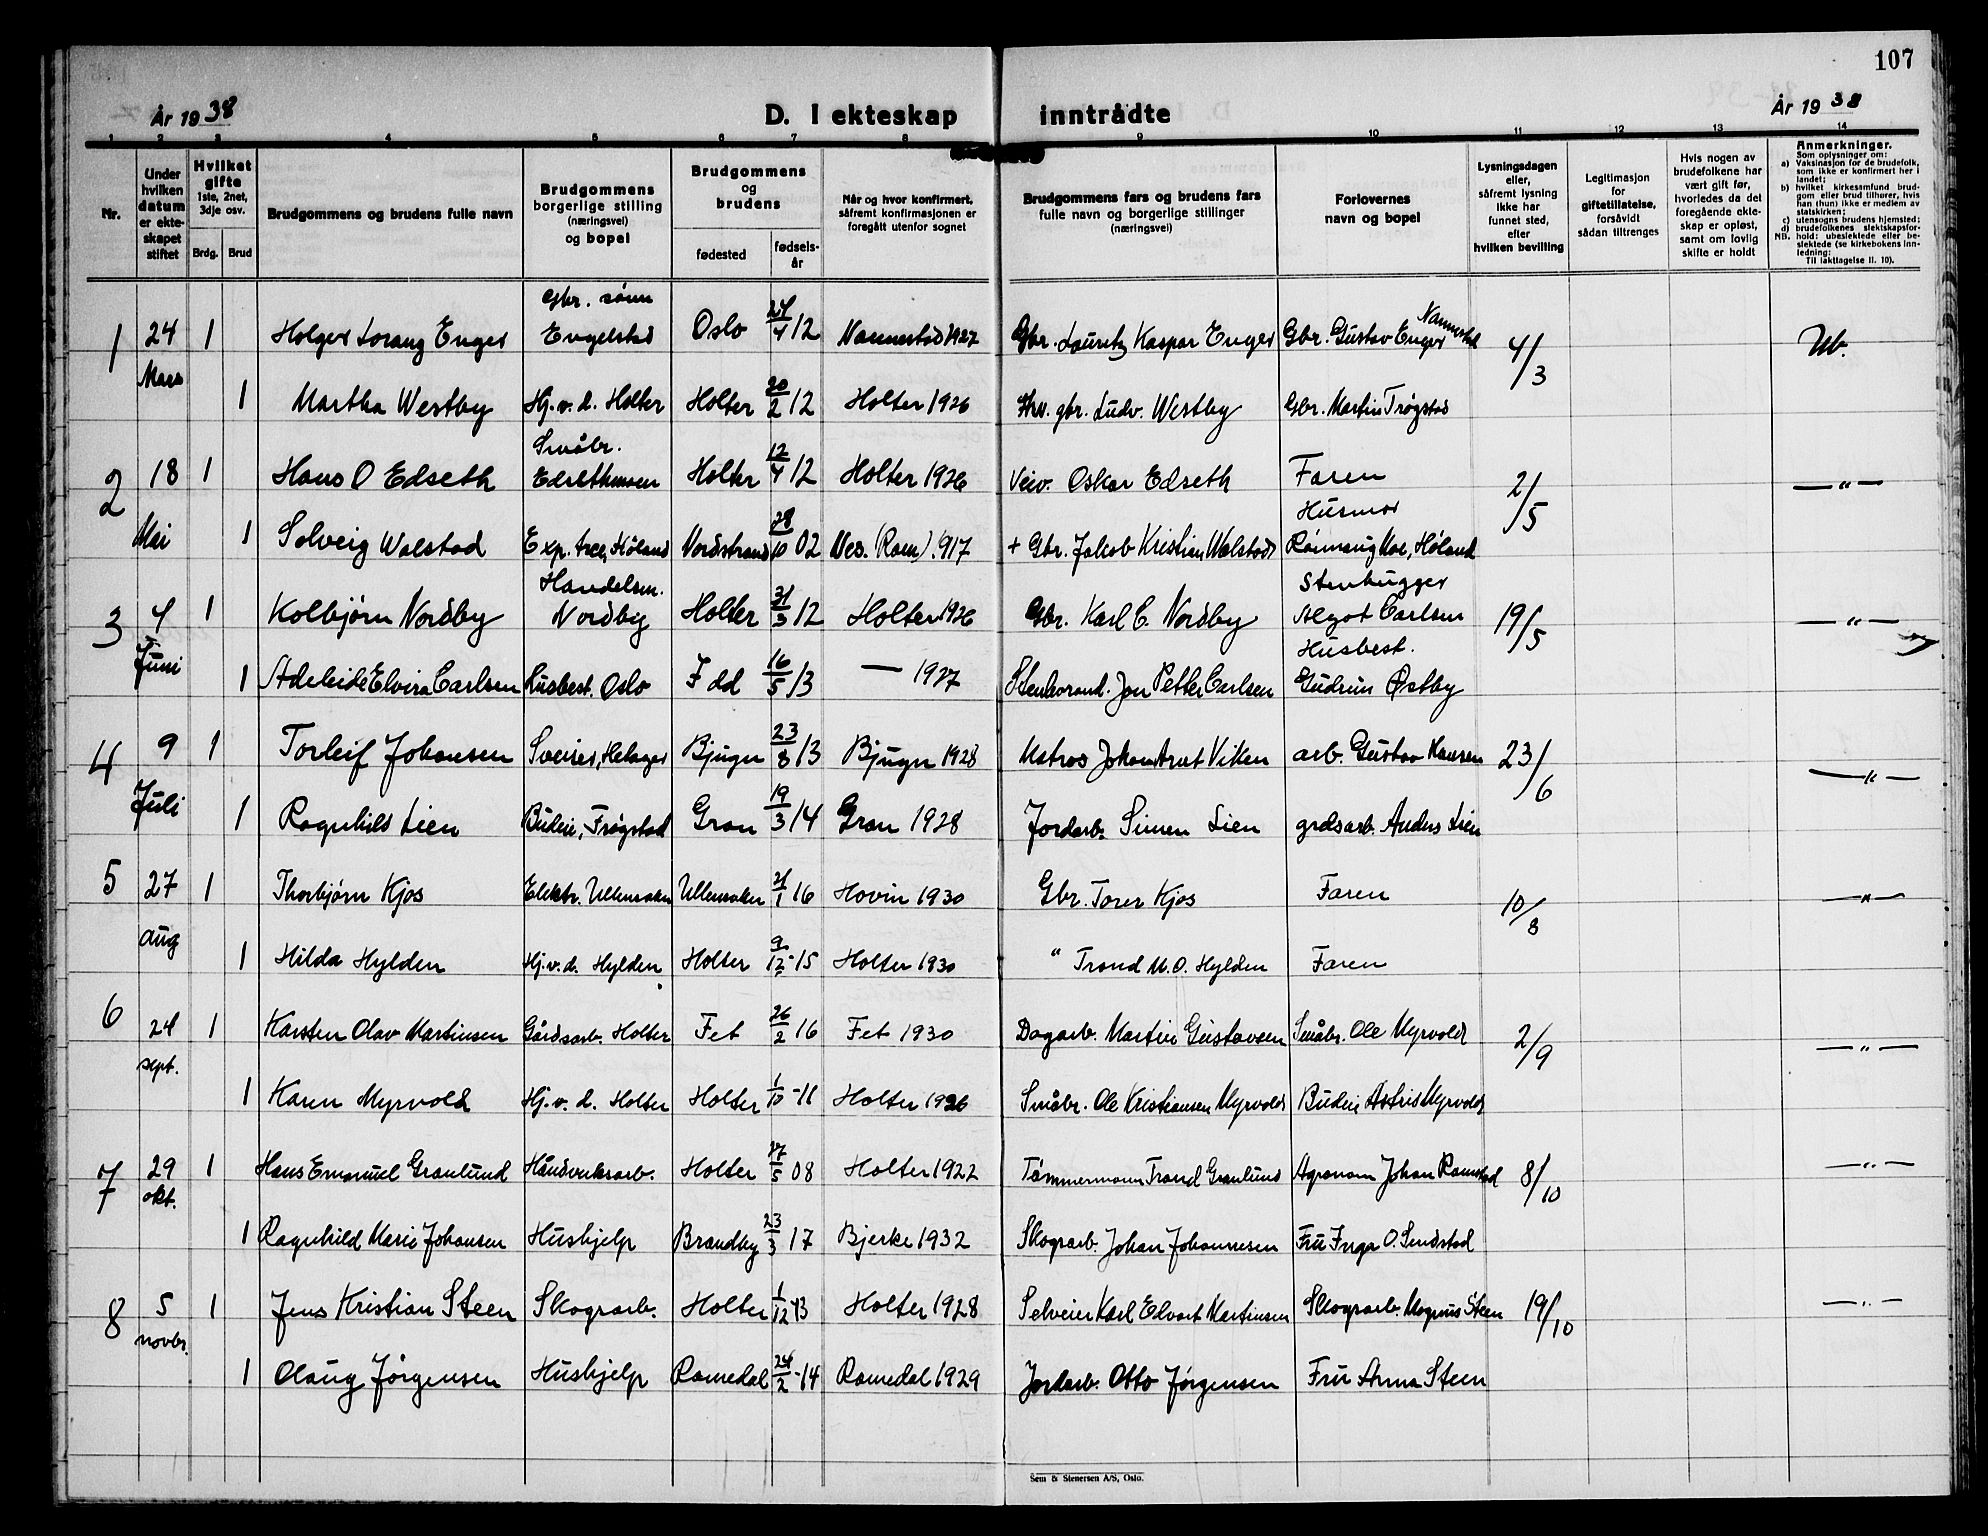 107
År 1938
D. I ekteskap inntrådte
År 1938
1 2 3 4 5 6 7 8 9 10 11 12 13 14
Nr.
Under hvilken datum er ekteskapet stiftet
Hvilket gifte 1ste, 2net, 3dje osv.
Brdg. Brud
Brudgommens og brudens fulle navn
Brudgommens borgerlige stilling (næringsvei) og bopel
Brudgommens og brudens
fødested
fødselsår
Når og hvor konfirmert, såfremt konfirmasjonen er foregått utenfor sognet
Brudgommens fars og brudens fars fulle navn og borgerlige stillinger (næringsvei)
Forlovernes navn og bopel
Lysningsdagen eller, såfremt lysning ikke har funnet sted, efter hvilken bevilling
Legitimasjon for giftetillatelse, forsåvidt sådan tiltrenges
Hvis nogen av brudefolkene har vært gift før, hvorledes da det foregående ekteskap er opløst, samt om lovlig skifte er holdt
Anmerkninger.
Som oplysninger om:
a) Vaksinasjon for de brudefolk, som ikke er konfirmert her i landet;
b) hvilket kirkesamfund brudgom eller brud tilhører, hvis han (hun) ikke er medlem av statskirken;
c) utensogns brudens hjemsted;
d) brudefolkenes slektskapsforhold: ubeslektede eller beslektede (se kirkebokens innledning:
NB.
Til iakttagelse II. 10).
1 24 Mars 1 Holger Lorang Enger Gbr. sønn Engelstad Oslo 24/4 12 Nannestad 1927 Gbr. Lauritz Kaspar Enger Gbr. Gustav Enger Nannestad 4/3 Ub.
1 Martha Westby Hj.v.d. Holter Holter 20/2 12 Holter 1926 gbr. Ludv. Westby Gbr. Martin Trøgstad
2 18 Mai 1 Hans O Edseth Småbr. Holter 12/4 12 Holter 1926 Veiv. Oskar Edseth Faren 2/5 — " —
1 Solveig Walstad Exp. Høland Nordstrand 28/10 02 Nes. (Rom). 917 + Gbr. Jakob Kristian Walstad Husmor Rønnaug Moe, Høland
3 4 Juni 1 Kolbjørn Nordby Handelsm. Nordby Holter 31/3 12 Holter 1926 Gbr. Karl C. Nordby Stenhugger Algot Carlsen 19/5 — " —
1 Adeleide Elvira Carlsen Husbest. Oslo Idd 16/5 13 — 1927 Jon Petter Carlsen Husbest. Gudrun Østby
4 9 Juli 1 Torleif Johansen Sveiser, Helager Bjugn 23/8 13 Bjugn 1928 Matros Johan Arnt Viken arb. Gustav Hansen 23/6 — " —
1 Ragnhild Lien Budeie, Frøgstad Gran 19/3 14 Gran 1928 Jordarb. Simen Lien grdsarb. Anders Lien
5 27 Aug 1 Thorbjørn Kjos Elektr. Ullensaker Ullensaker 21/1 16 Hovin 1930 Gbr. Torer Kjos Faren 10/8 — " —
1 Hilda Hylden Hj.v.d. Hylden Holter 9/12 -15 Holter 1930 " Trond M.O. Hylden Faren
6 24 sept. 1 Karsten Olav Martinsen Gårdsarb. Holter Fet 26/2 16 Fet 1930 Dagarb. Martin Gustavsen Småbr. Ole Myrvold 2/9 — " —
1 Karen Myrvold Hj.v.d. Holter Holter 1/10 -11 Holter 1926 Småbr. Ole Kristiansen Myrvold Budeie Astrid Myrvold
7 29 okt. 1 Hans Emanuel Granlund Håndverksarb. Holter 27/5 08 Holter 1922 Tømmermann Trond Granlund Agronom Johan Ramstad 8/10 — " —
1 Ragnhild Marie Johansen Hushjelp Brandby 23/3 17 Bjerke 1932 Skogsarb. Johan Johannesen Fru Inga O. Sundstad
8 5 novbr. 1 Jens Kristian Steen Skogsarb. Holter 1/12 13 Holter 1928 Selveier Karl Edvart Martinsen Skogsarb. Magnus Steen 19/10 — " —
1 Olaug Jørgensen Hushjelp Romedal 24/2 -14 Romedal 1929 Jordarb. Otto Jørgensen Fru Anna Steen
Sem & Stenersen A/S, Oslo.